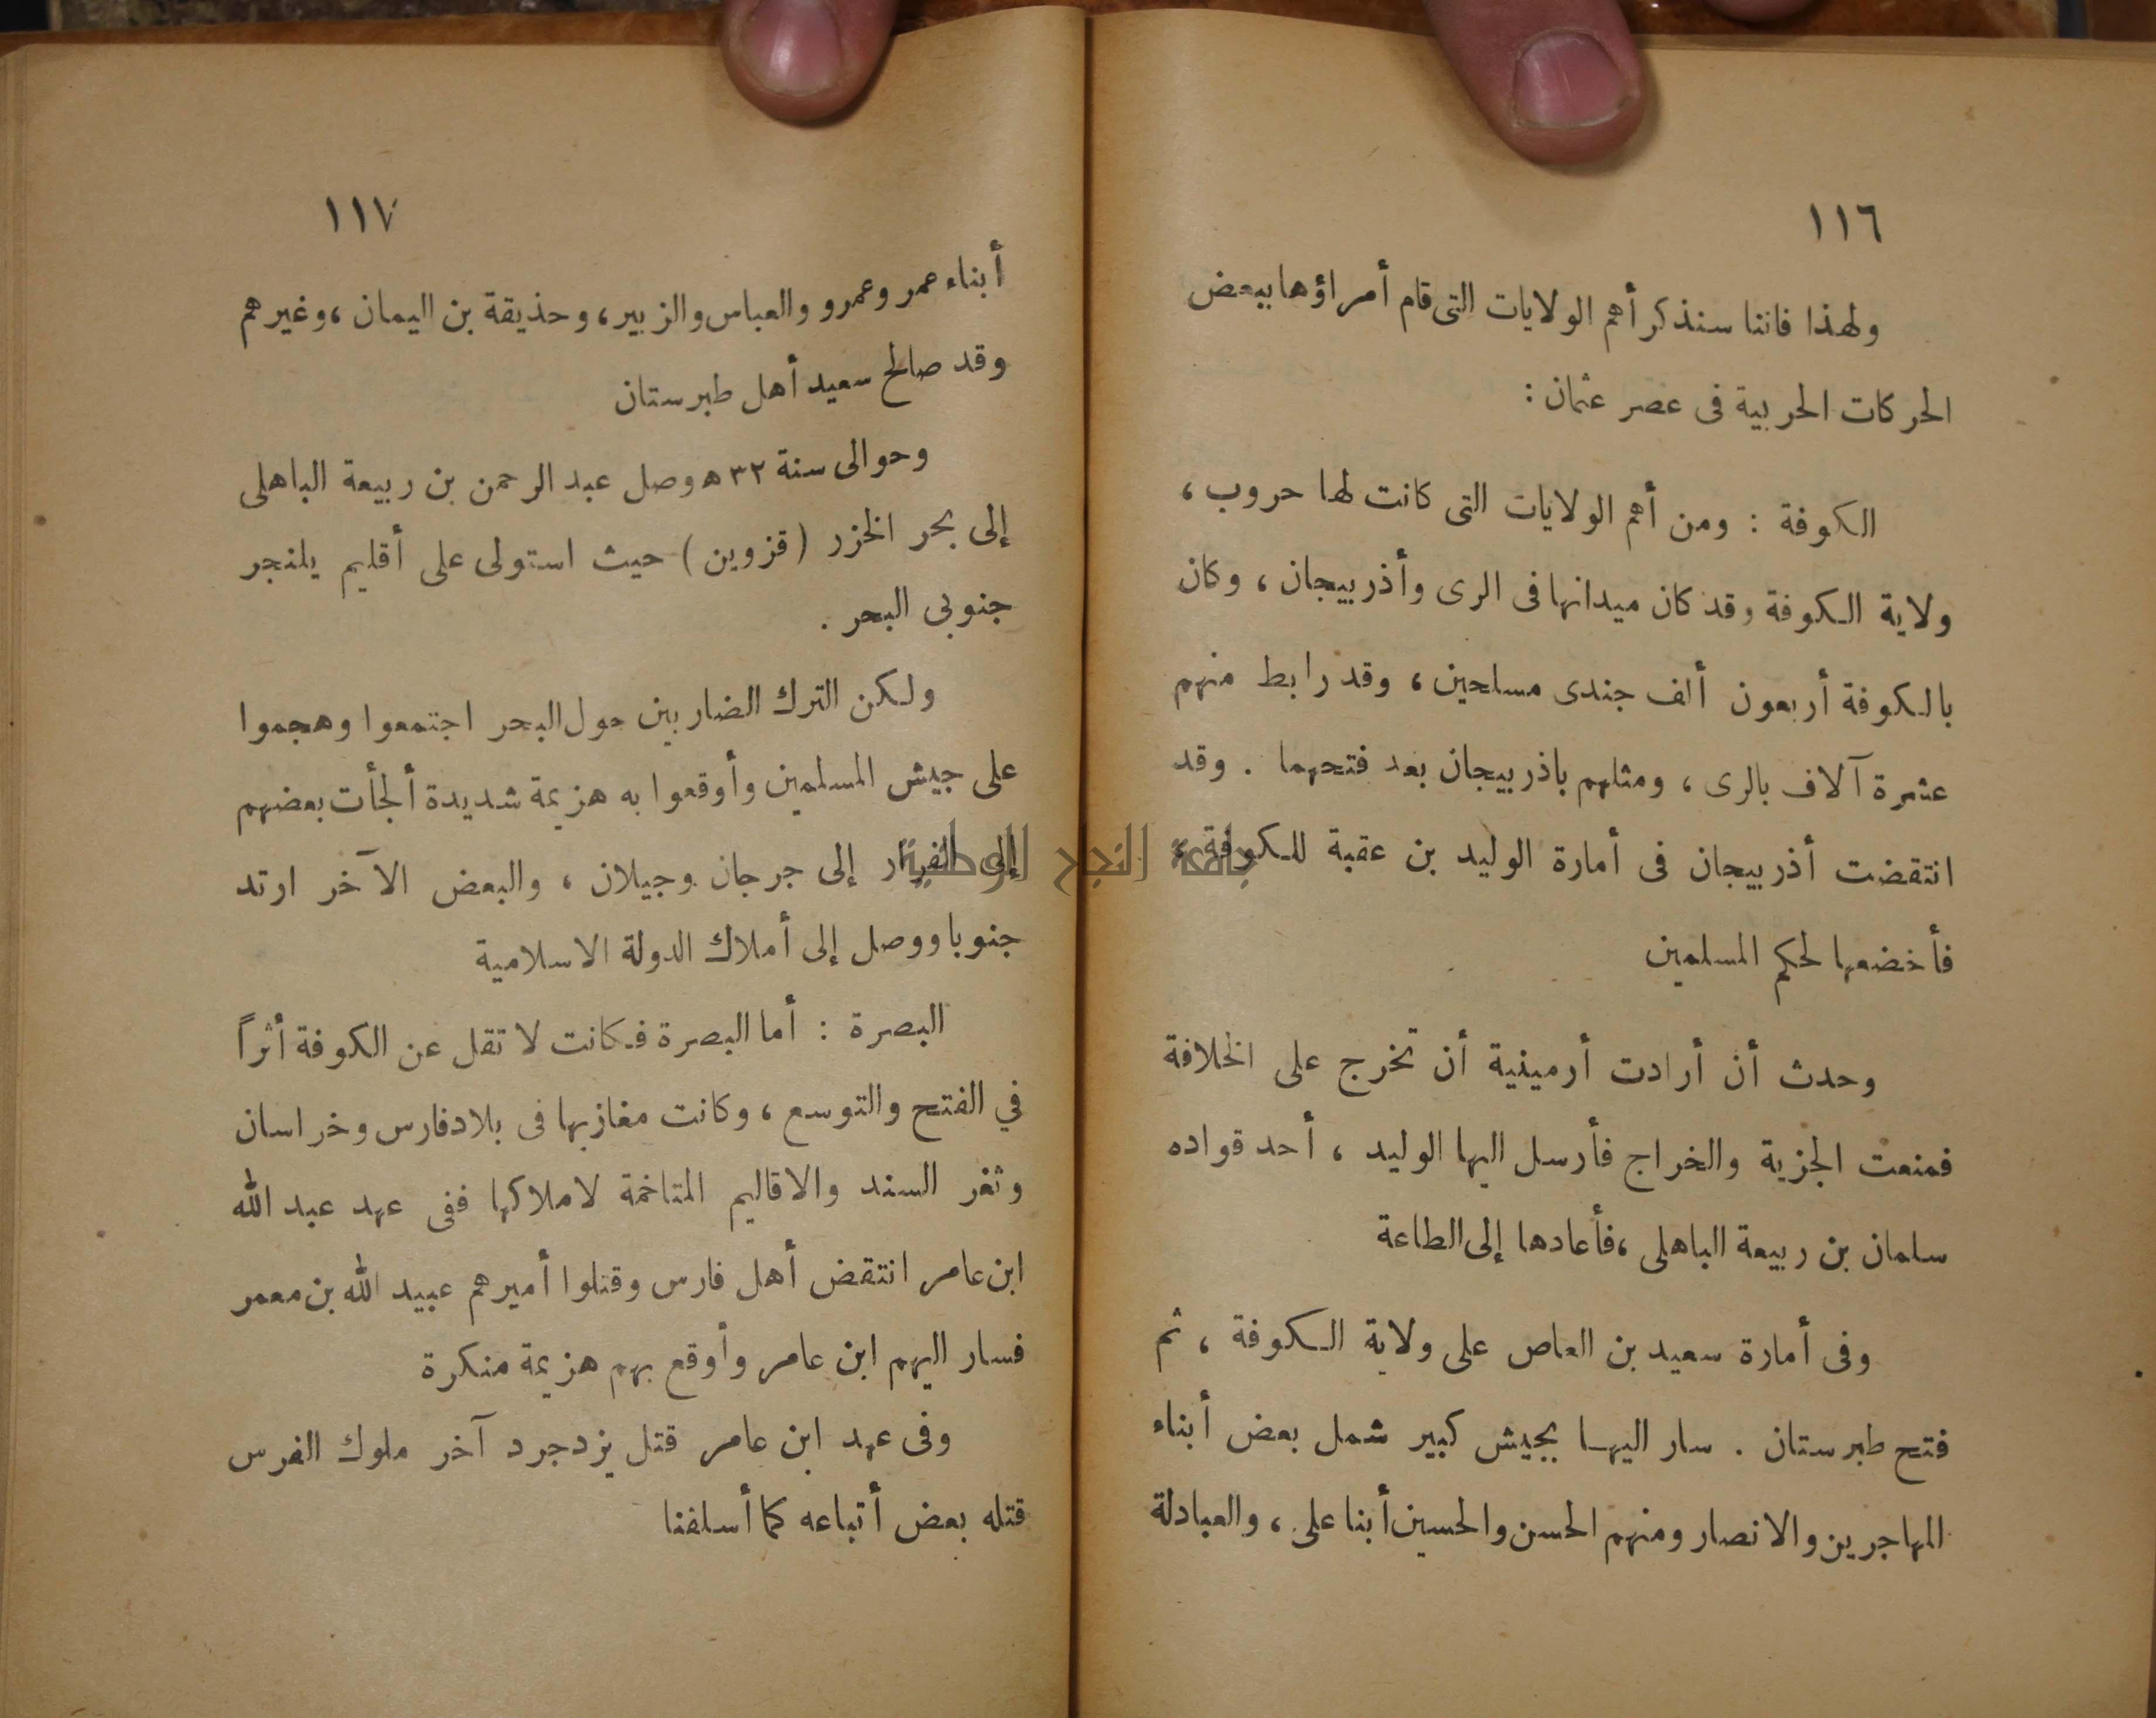 ١١٦
ولهذا فاننا سنذكر أهم الولايات التى قام أمراؤها ببعض
الحركات الحربية فى عصر عثمان :
الكوفة : ومن أهم الولايات التى كانت لها حروب ،
ولاية الكوفة وقد كان ميدانها فى الرى وأذربيجان ، وكان
بالكوفة أربعون ألف جندى مسلحين ، وقد رابط منهم
عشرة آلاف بالرى ، ومثلهم باذربيجان بعد فتحهما . وقد
انتقضت أذربيجان فى أمارة الوليد بن عقبة للكوفة ،
فأخضعها لحكم المسلمين
وحدث أن أرادت أرمينية أن تخرج على الخلافة
فمنعت الجزية والخراج فأرسل اليها الوليد ، أحد قواده
سلمان بن ربيعة الباهلى ، فأعادها إلى الطاعة
وفى أمارة سعيد بن العاص على ولاية الكوفة ، تم
فتح طبرستان . سار اليها بجيش كبير شمل بعض أبناء
المهاجرين والانصار ومنهم الحسن والحسين أبنا على ، والعبادلة
١١٧
أبناء عمر وعمرو والعباس والزبير ، وحذيقة بن اليمان ، وغيرهم
وقد صالح سعيد أهل طبرستان
وحوالى سنة ٣٢ ه وصل عبد الرحمن بن ربيعة الباهلى
إلى بحر الخزر ( قزوين ) حيث استولى على أقليم يلنجر
جنوبى البحر .
ولكن الترك الضاربين حول البحر اجتمعوا وهجموا
على جيش المسلمين وأوقعوا به هزيمة شديدة ألجأت بعضهم
إلى الفرار إلى جرجان وجيلان ، والبعض الآخر ارتد
جنوبا ووصل إلى أملاك الدولة الاسلامية
البصرة : أما البصرة فكانت لا تقل عن الكوفة أثراً
في الفتح والتوسع ، وكانت مغازيها فى بلاد فارس وخراسان
وثغر السند والاقاليم المتاخمة لاملاكها ففى عهد عبد الله
ابن عامر انتقض أهل فارس وقتلوا أميرهم عبيد الله بن معمر
فسار اليهم ابن عامر وأوقع بهم هزيمة منكرة
وفى عهد ابن عامر قتل يزدجرد آخر ملوك الفرس
قتله بعض أتباعه كما أسلفنا
جامعة النجاح الوطنية